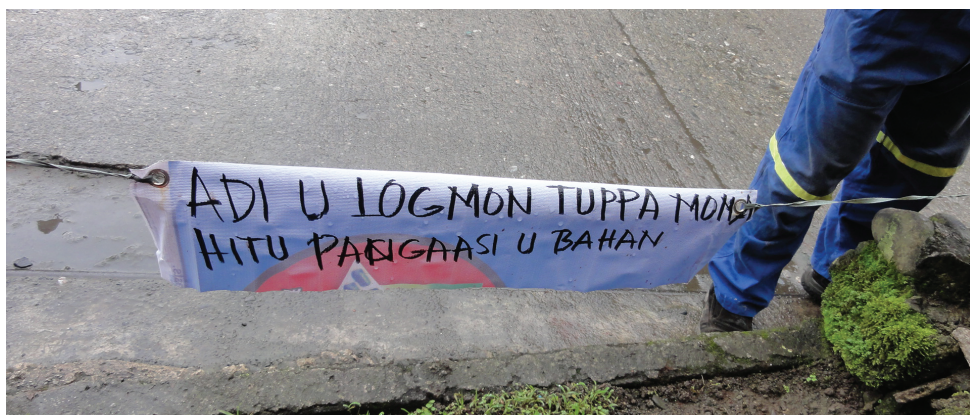 ADI U LOGMON TUPPA MOMA
HITU PANGAASI U BAHAN